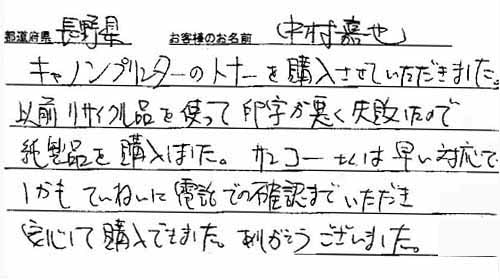 都道府県 長野県 お客様のお名前 中村嘉也
キャノンプリンターのトナーを購入させていただきました。
以前リサイクル品を使って印字が悪く失敗したので
純製品を購入しました。サンコーさんは早い対応で
しかもていねいに電話での確認までいただき
安心して購入できました。ありがとうございました。